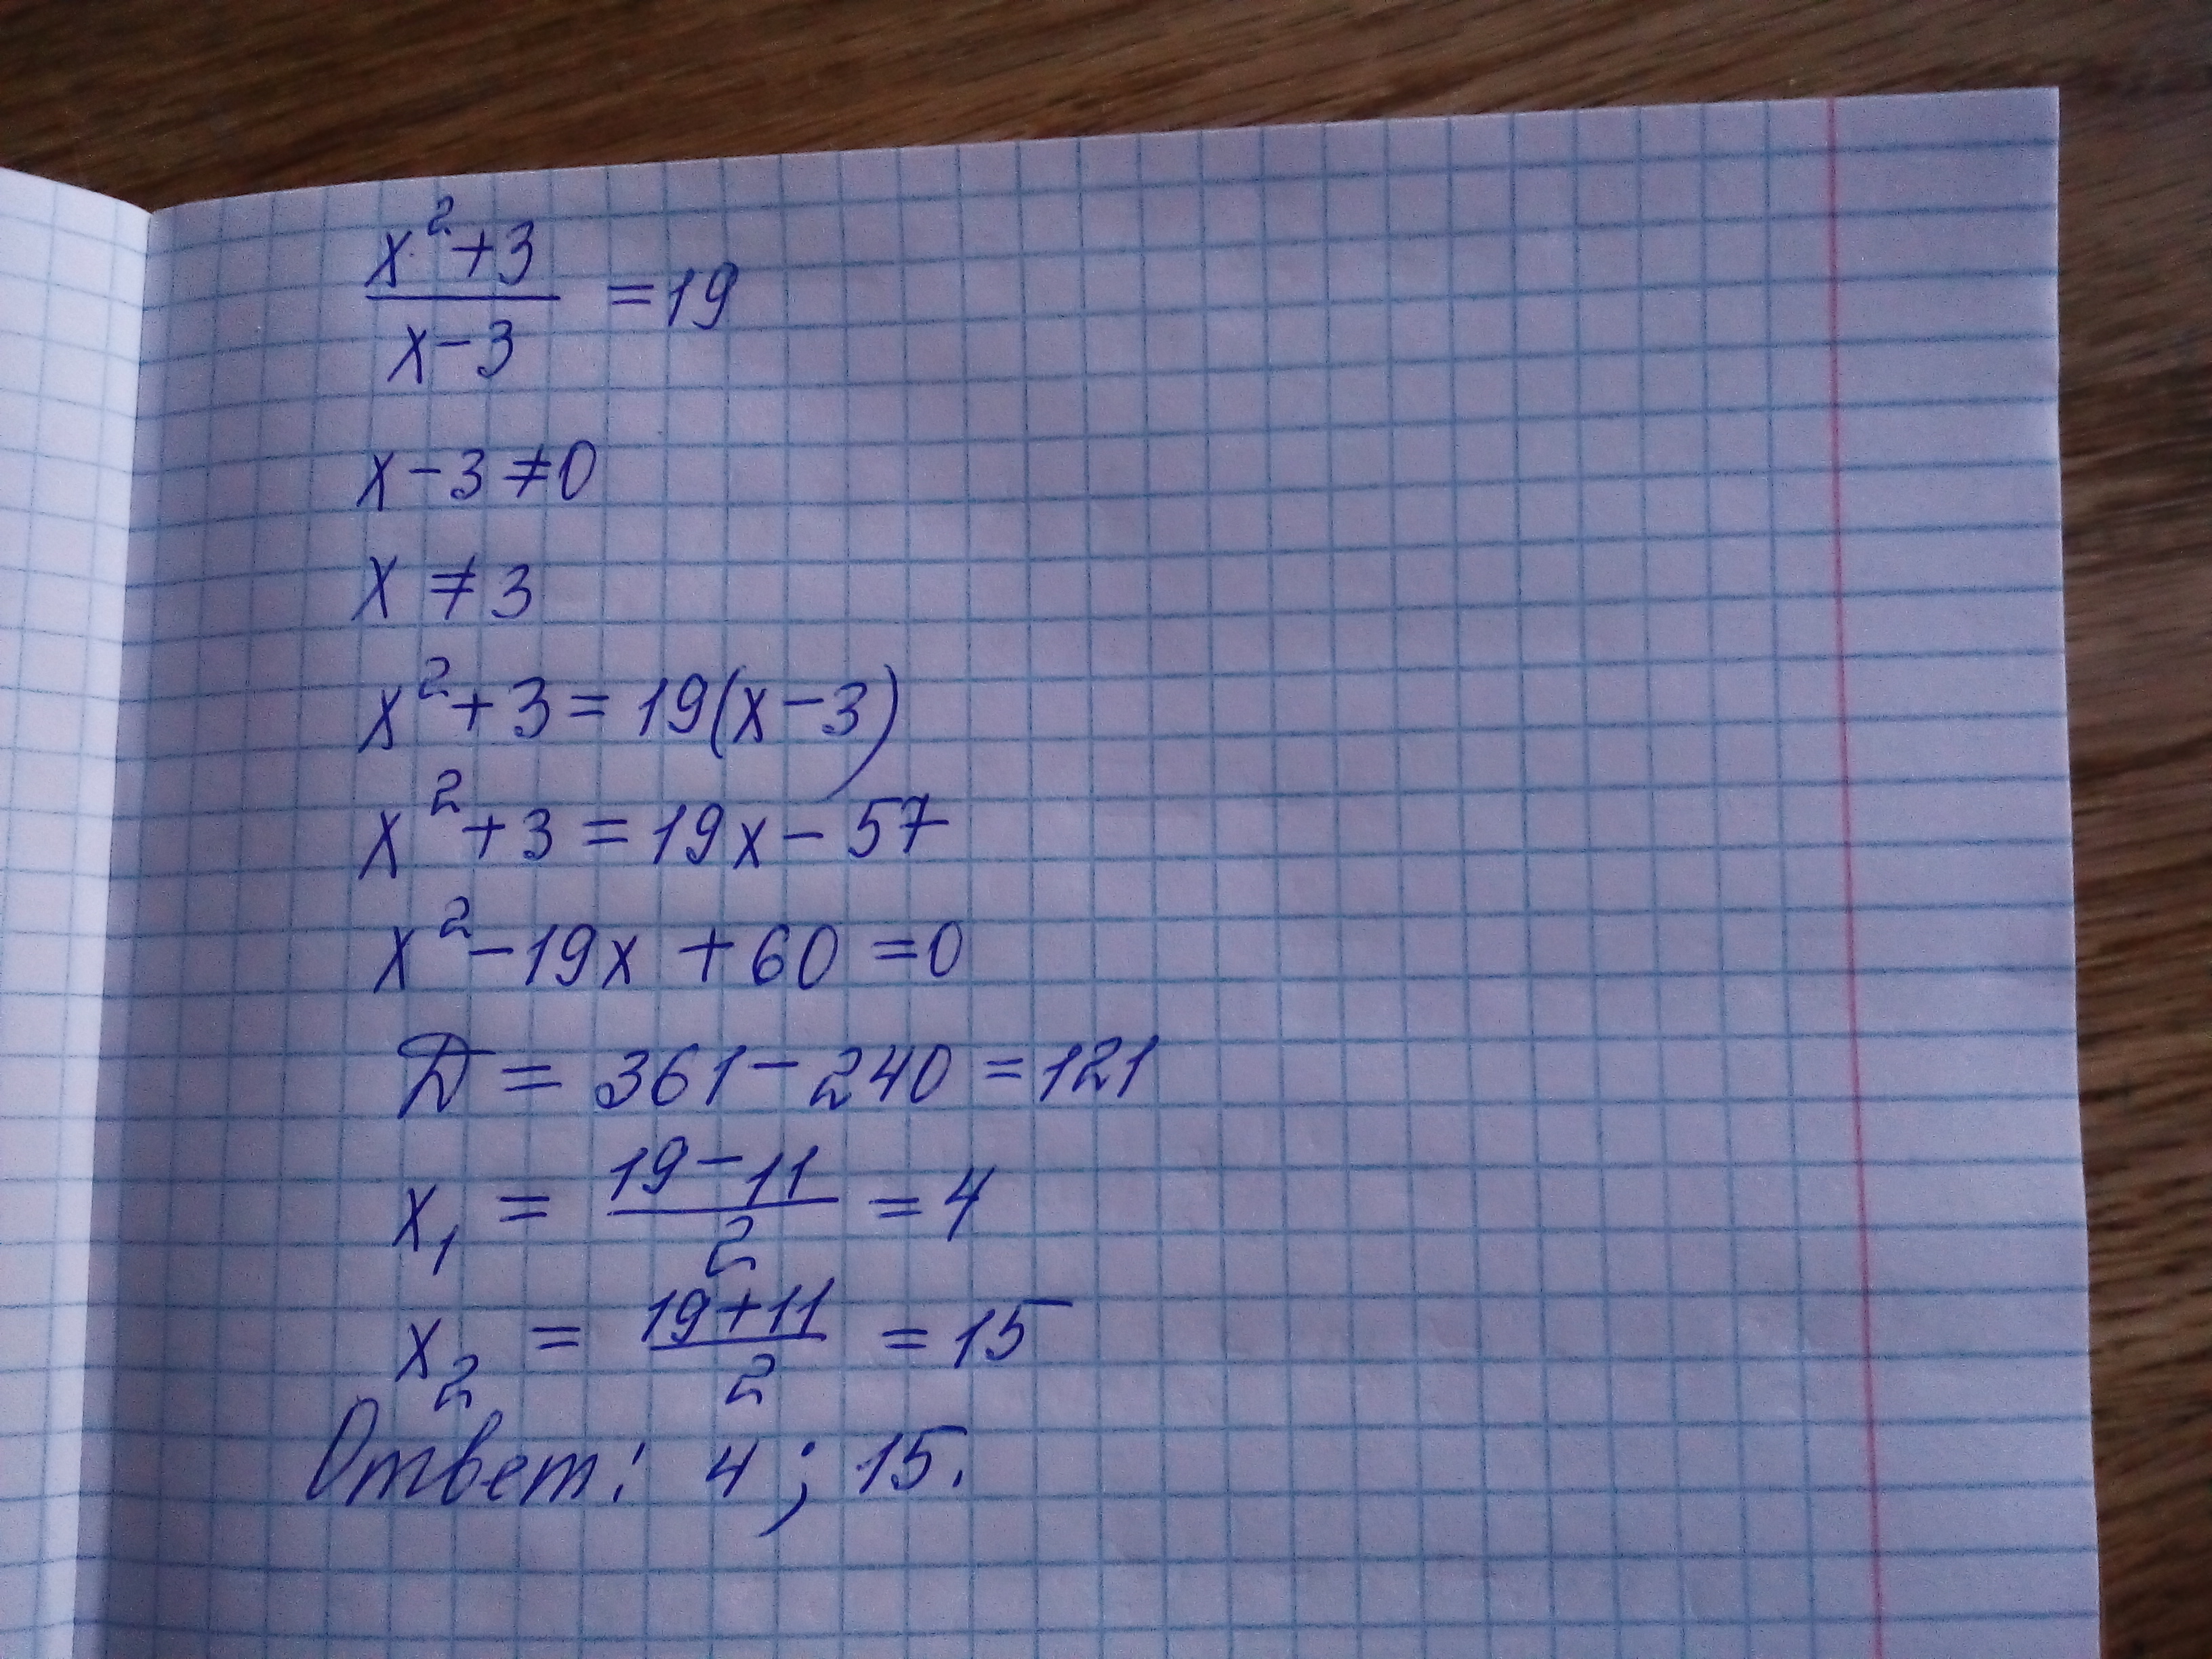 x²+3
x-3 =19
x-3≠0
x ≠3
x²+3=19(x-3)
x²+3=19x-57
x²-19x+60=0
D=361-240=121
x₁ = 19-11 / 2 =4
x₂ = 19+11 / 2 =15
Ответ: 4; 15.